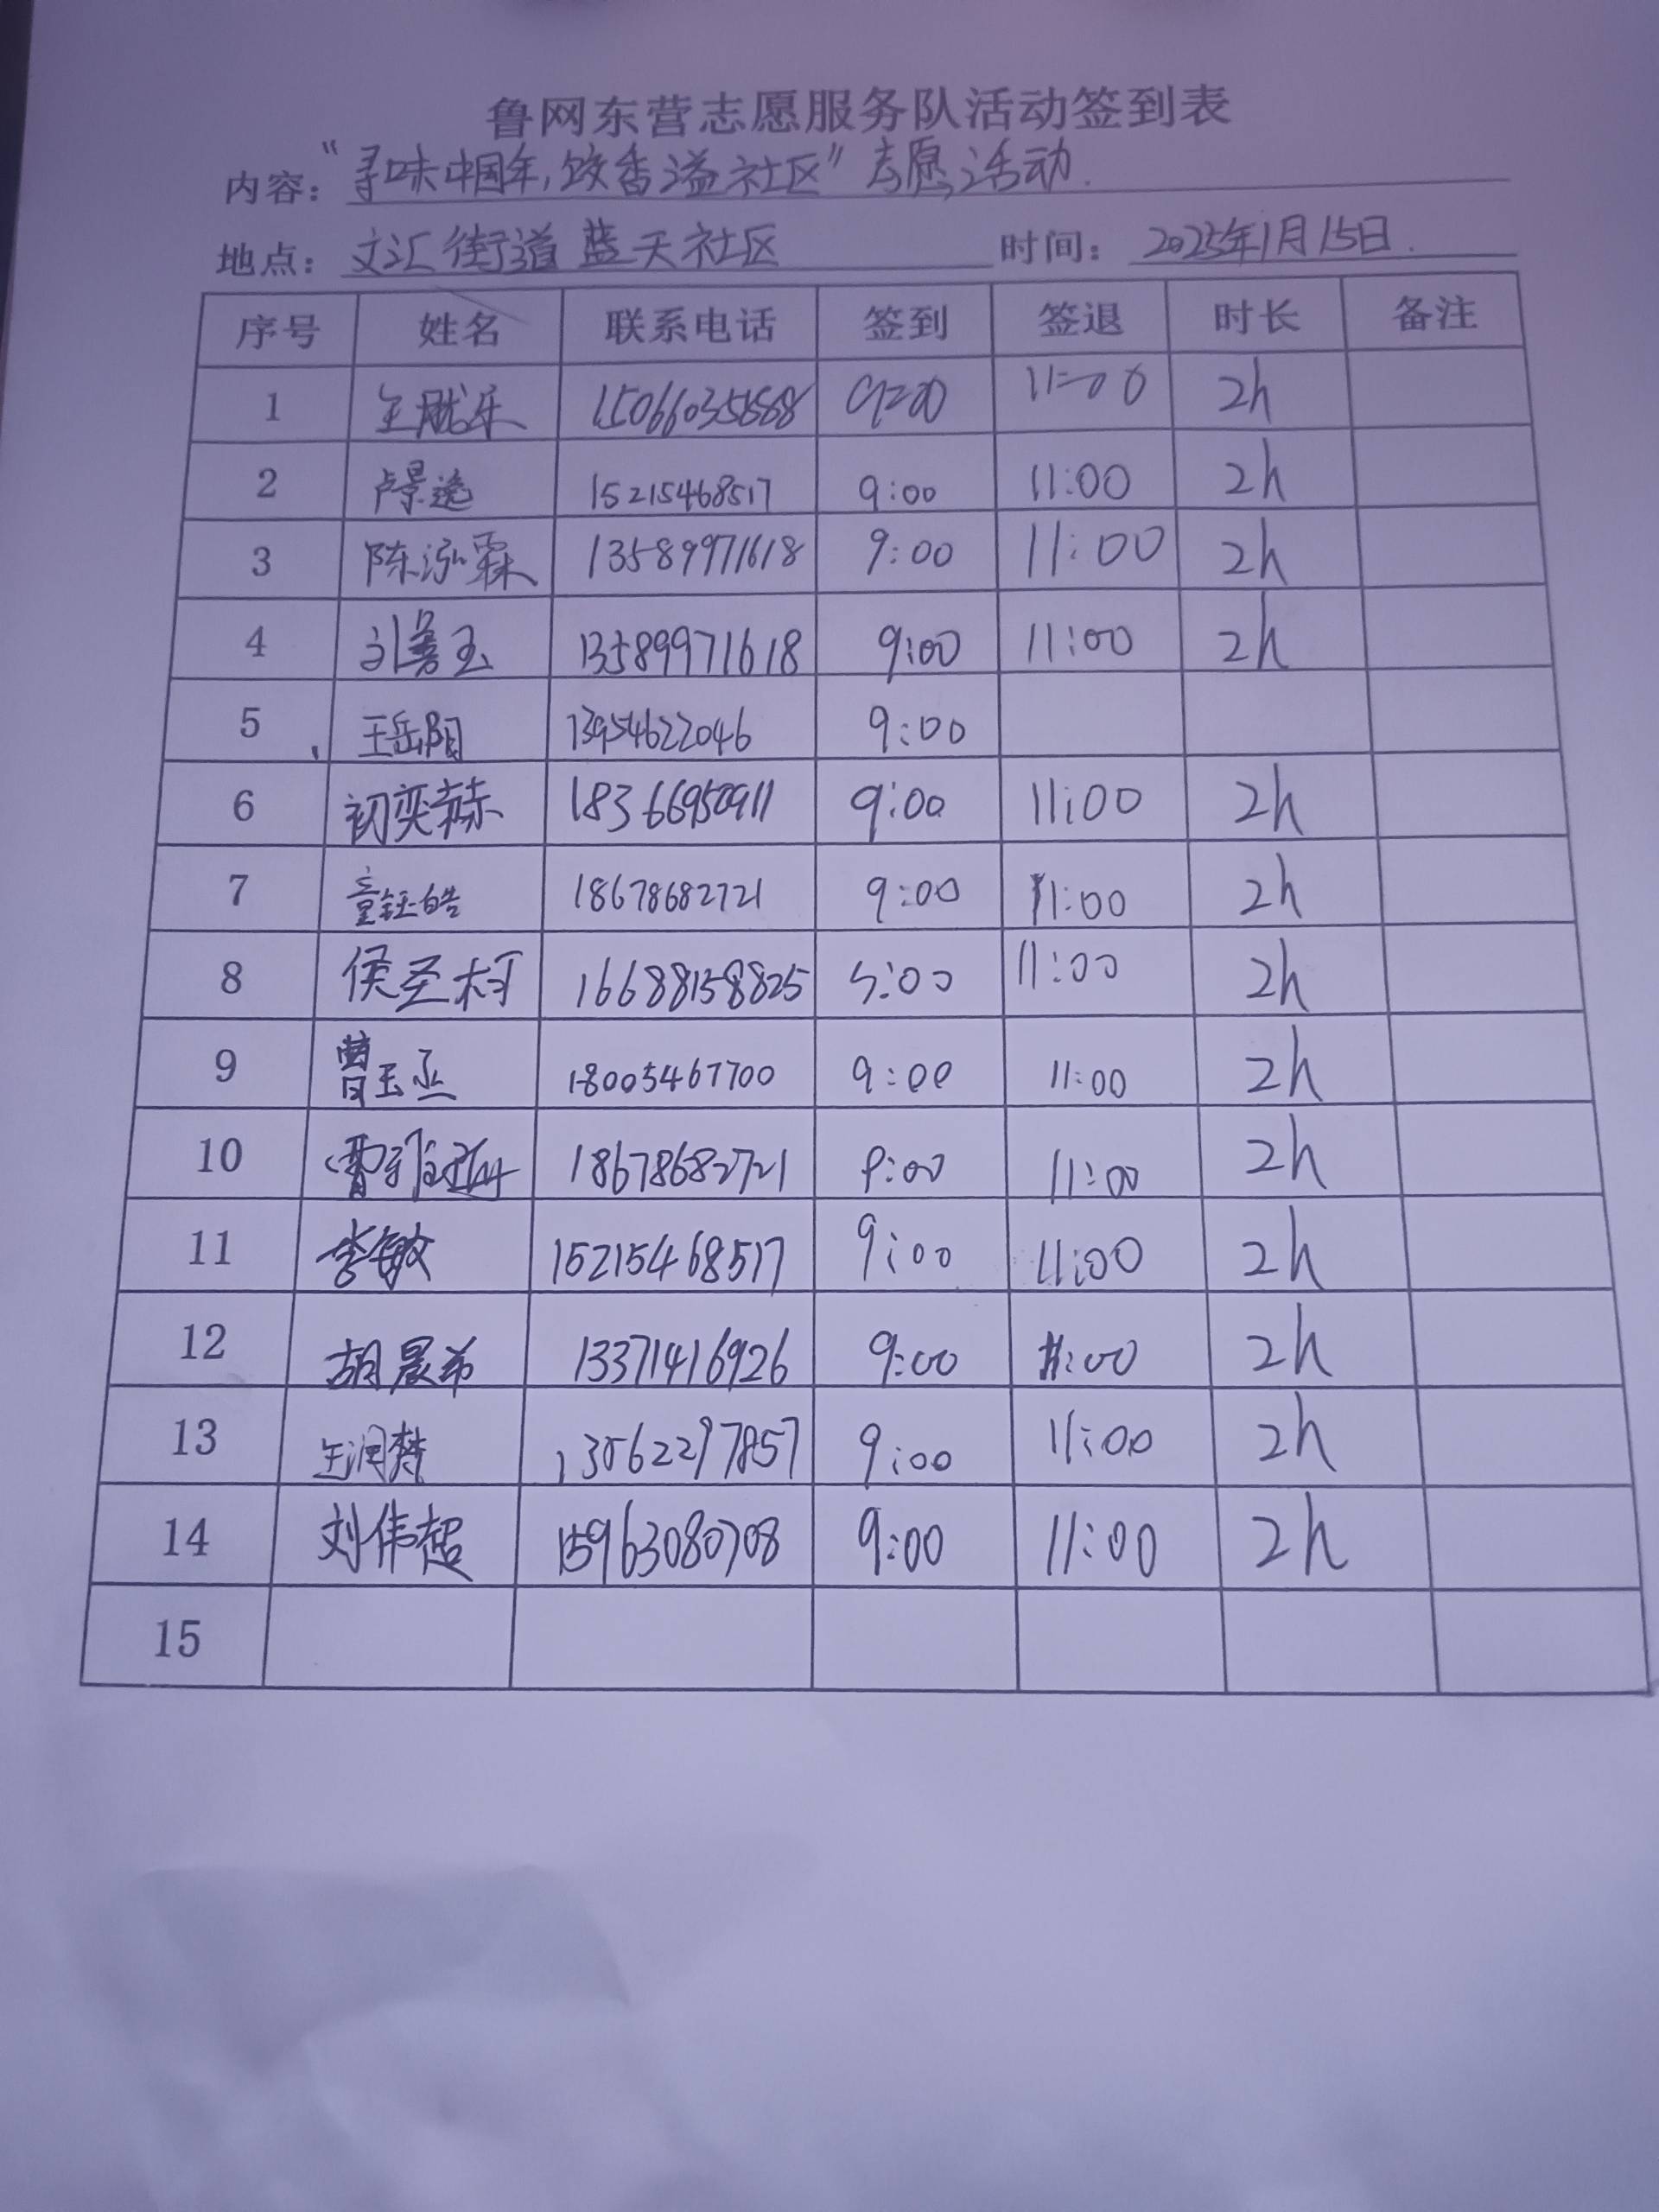 鲁网东营志愿服务队活动签到表
内容: “寻味中国年,饺香溢社区”志愿活动.
地点: 文汇街道蓝天社区 时间: 2025年1月15日.
序号 姓名 联系电话 签到 签退 时长 备注
1 9:00 11:00 2h
2 卢景逸 15215468517 9:00 11:00 2h
3 陈泓霖 13589971618 9:00 11:00 2h
4 13589971618 9:00 11:00 2h
5 王岳阳 13954622046 9:00
6 初奕赫 18366950911 9:00 11:00 2h
7 童钰皓 18678682721 9:00 11:00 2h
8 侯圣柯 16688158825 9:00 11:00 2h
9 曹玉丞 18005467700 9:00 11:00 2h
10 18678682721 9:00 11:00 2h
11 李敏 15215468517 9:00 11:00 2h
12 胡晨希 13371416926 9:00 11:00 2h
13 王润梦 9:00 11:00 2h
14 刘伟超 15963080708 9:00 11:00 2h
15